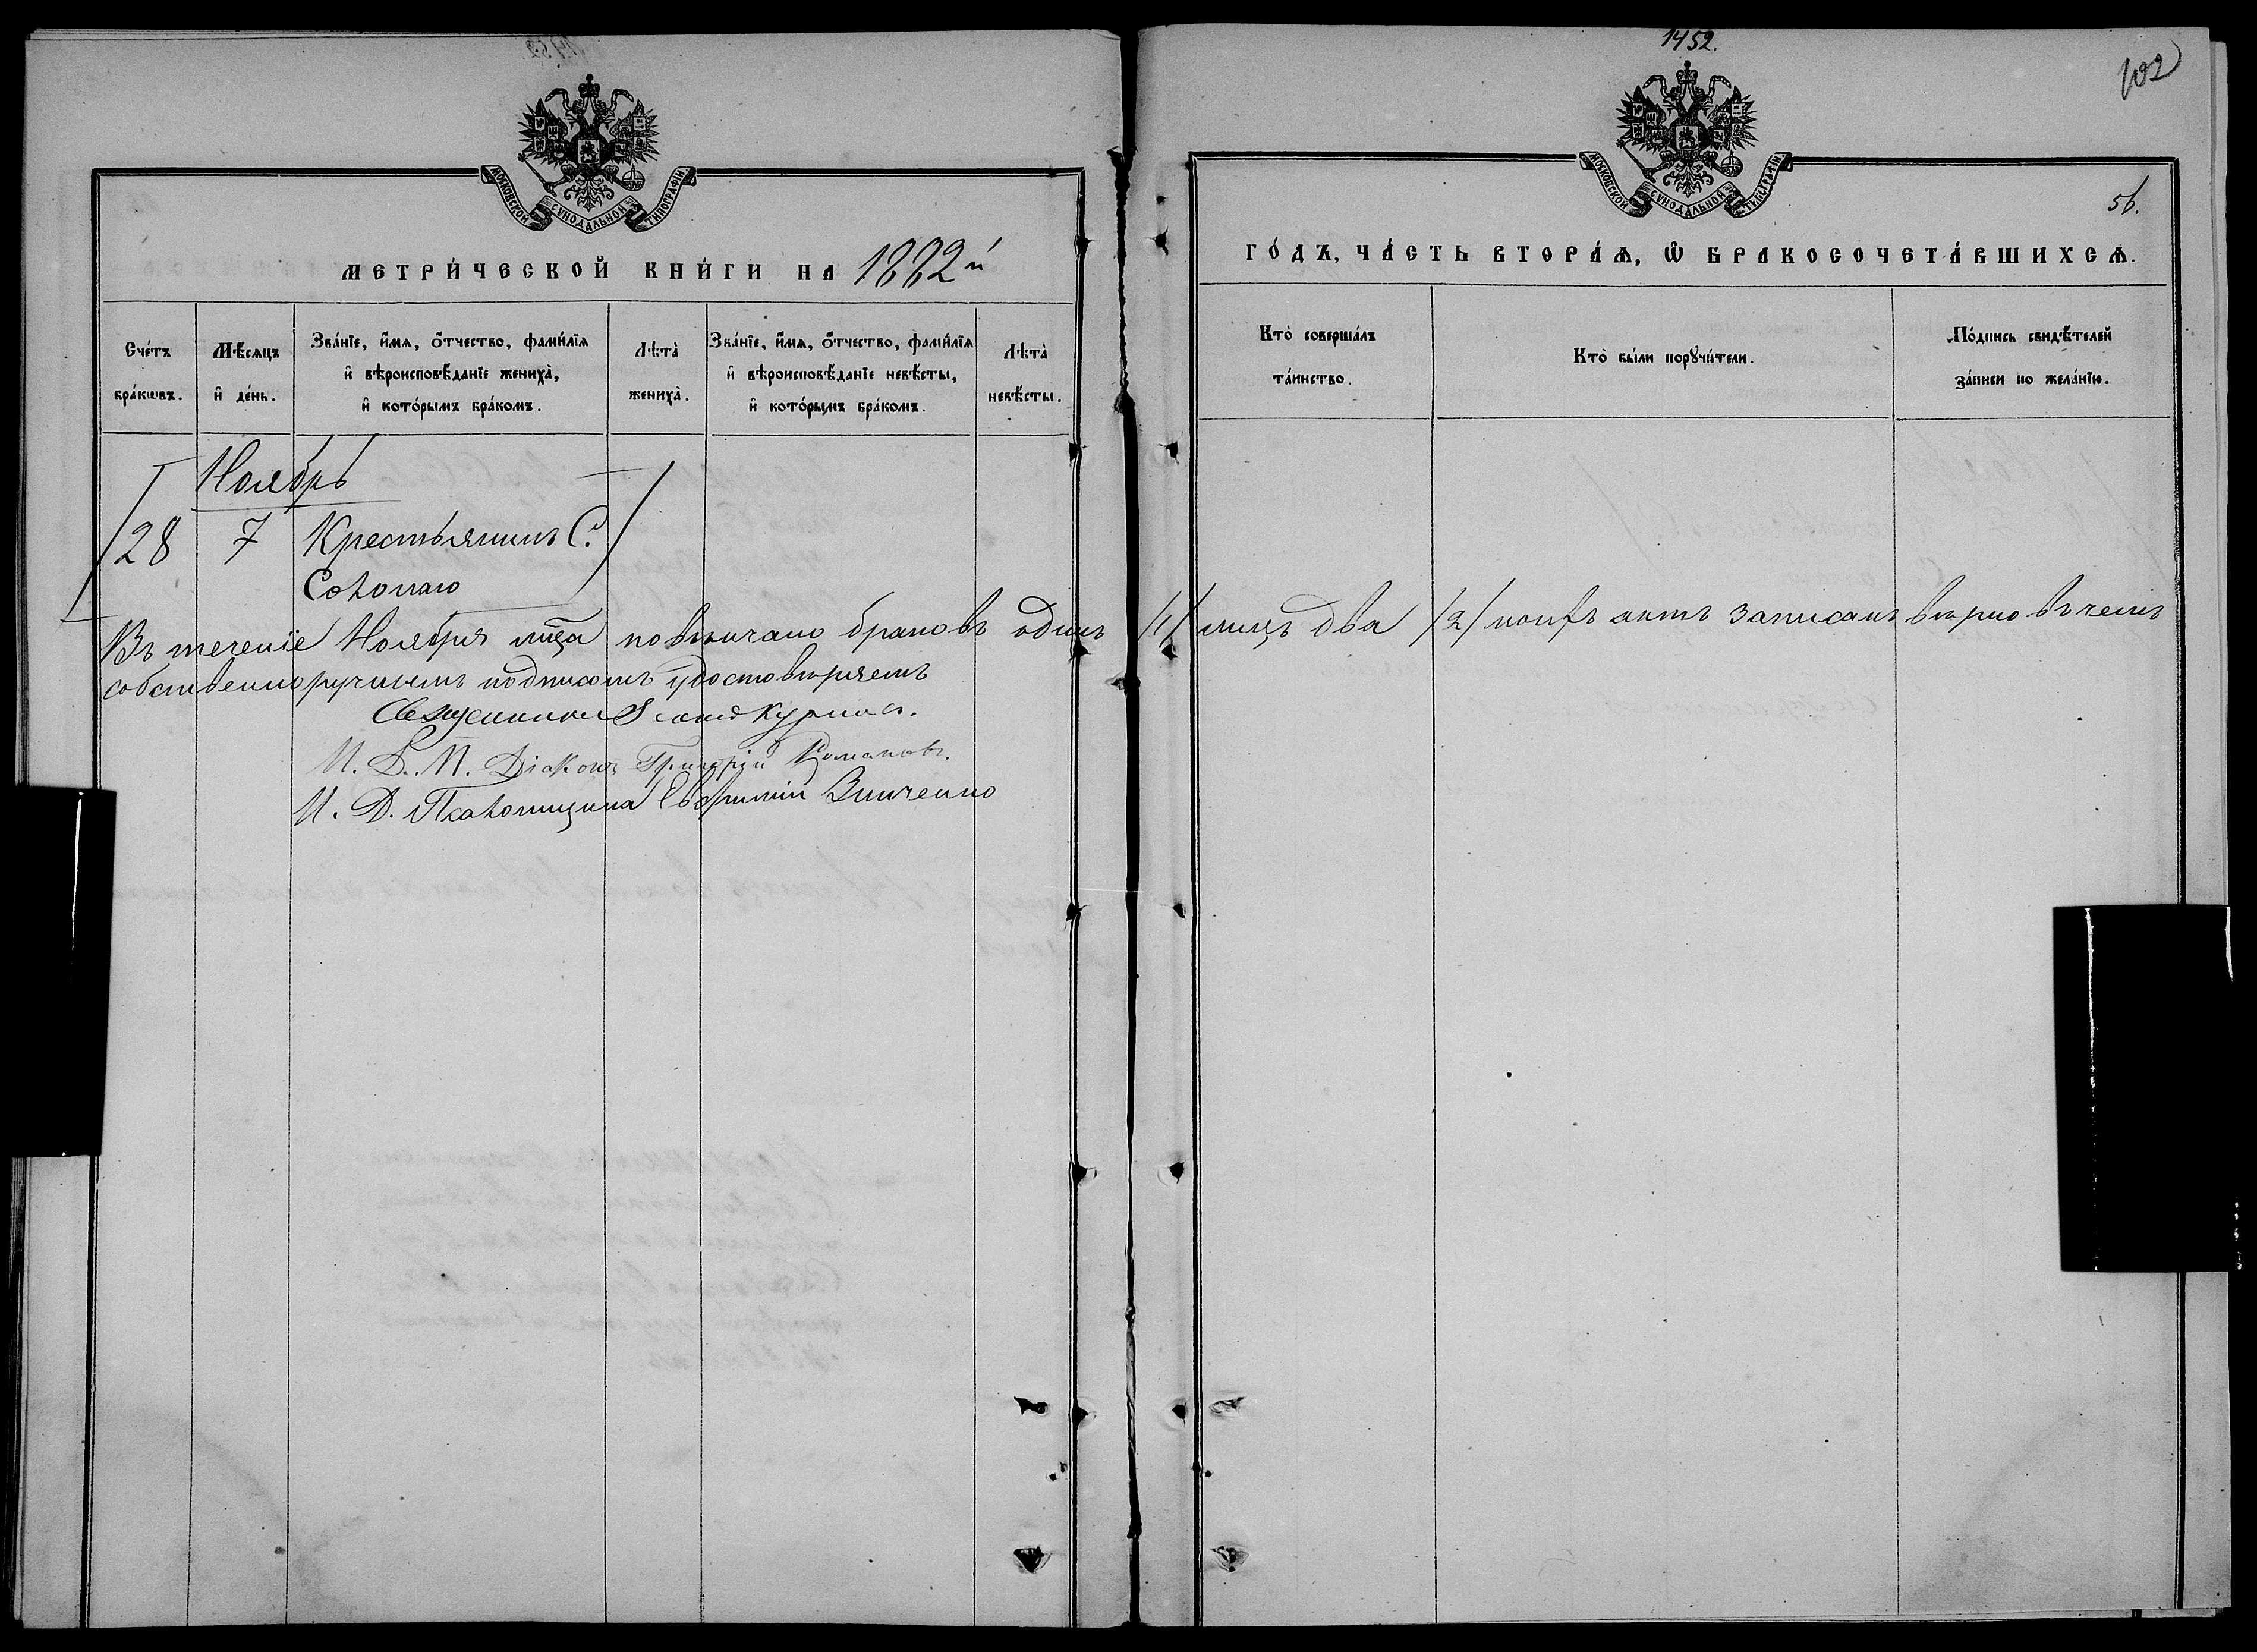 1452.
102
МОСКОВСКОЙ СѴНОДАЛЬНОЙ ТИПОГРАФІИ
МОСКОВСКОЙ СѴНОДАЛЬНОЙ ТИПОГРАФІИ
56.
МЕТРИ́ЧЕСКОЙ КНИ́ГИ НА 1882й
ГО́ДЪ, ЧА́СТЬ ВТОРА́Ѧ, Ѽ БРАКОСОЧЕТА́ВШИХСѦ.
Сче́тъ
бра́кѡвъ.
Мѣ́сяцъ
и҆ де́нь.
Зва́нїе, и҆́мѧ, ѻ҆́тчество, фами́лїѧ
и҆ вѣроисповѣ́данїе жениха̀,
и҆ кото́рымъ бра́комъ.
Лѣта̀
жениха̀.
Зва́нїе, и҆́мѧ, ѻ҆́тчество, фами́лїѧ
и҆ вѣроисповѣ́данїе невѣ́сты,
и҆ кото́рымъ бра́комъ.
Лѣта̀
невѣ́сты.
Кто̀ соверша́лъ
та́инство.
Кто̀ бы́ли порꙋчи́тели.
По́дпись свидѣ́телей
за́писи по жела́нїю.
Ноябрь
28 7 Крестьянинъ С.
Въ теченіе Ноября мца повѣнчано браковъ одинъ /1/ лицъ два /2/ актъ записанъ вѣрно въ чемъ
собственноручнымъ подписомъ удостовѣряемъ
Священникъ
И. Д. П. Діаконъ Григорій Романовъ.
И. Д. Псаломщика Евфимій Зинченко